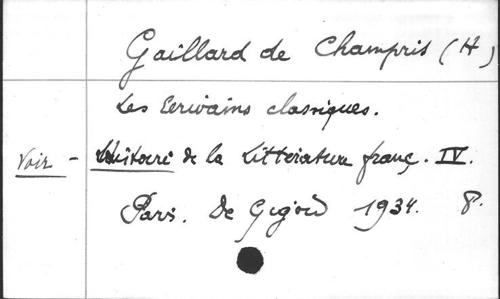 Gaillard de Champris (H)
Les Ecrivains classiques.
Voir - Histoire de la Littérature franç. IV.
Paris. De Gigord 1934. 8°.